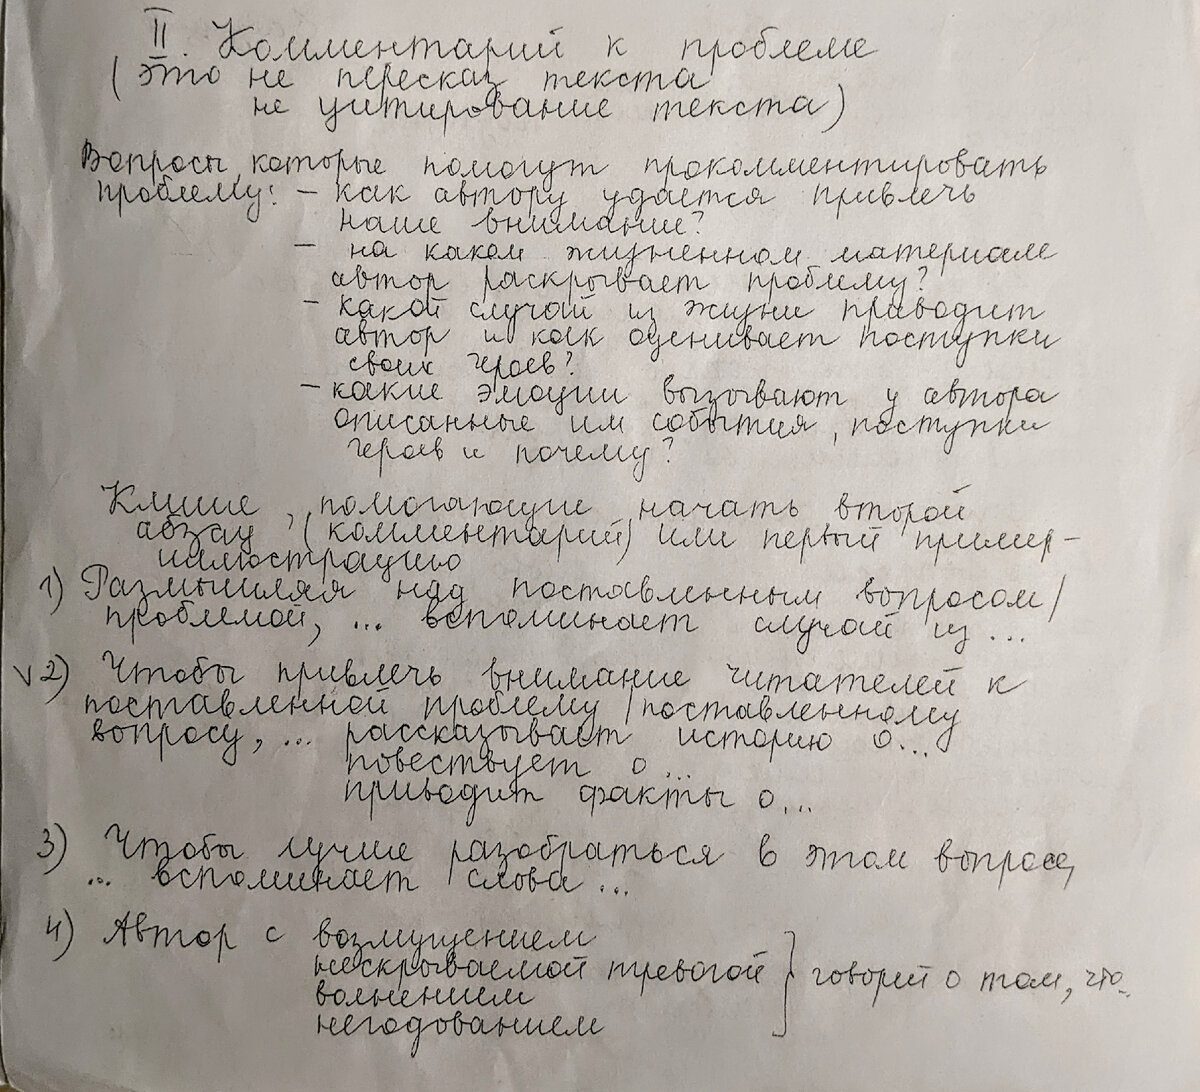 II. Комментарий к проблеме
(это не пересказ текста
не цитирование текста)
Вопросы, которые помогут прокомментировать
проблему: – как автору удаётся привлечь
наше внимание?
– на каком жизненном материале
автор раскрывает проблему?
– какой случай из жизни приводит
автор и как оценивает поступки
своих героев?
– какие эмоции вызывают у автора
описанные им события, поступки
героев и почему?
Клише, помогающие начать второй
абзац (комментарий) или первый пример-
иллюстрацию
1) Размышляя над поставленным вопросом/
проблемой, ... вспоминает случай из ...
v 2) Чтобы привлечь внимание читателей к
поставленной проблему/поставленному
вопросу, ... рассказывает историю о...
повествует о ...
приводит факты о...
3) Чтобы лучше разобраться в этом вопросе,
... вспоминает слова ...
4) Автор с возмущением
нескрываемой тревогой } говорит о том, что..
волнением
негодованием